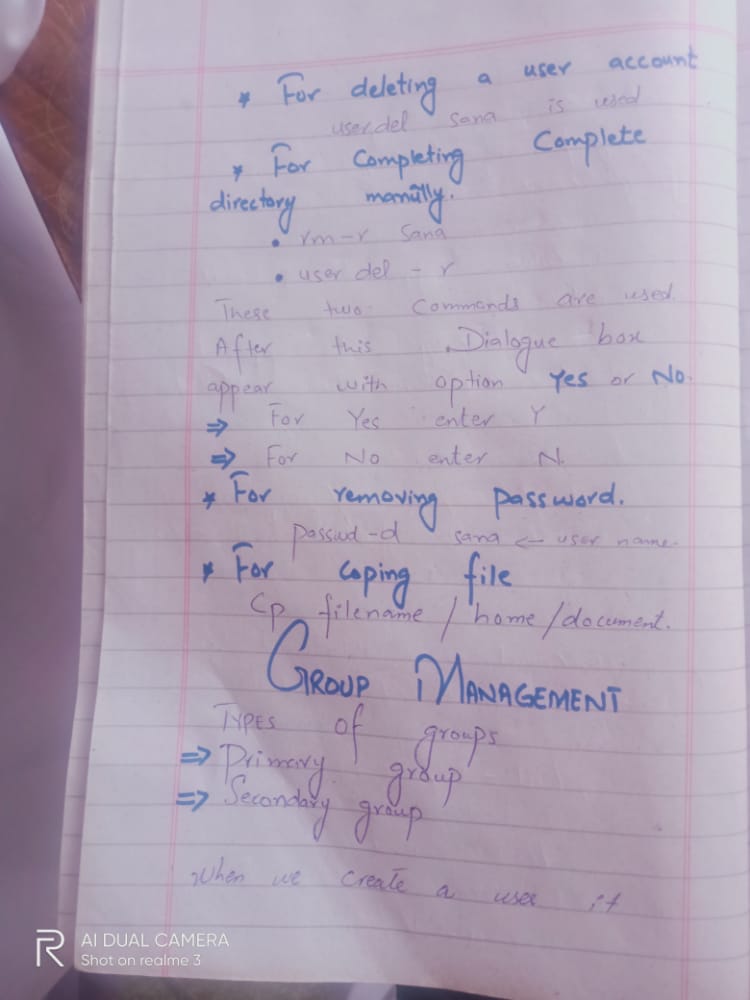 * For deleting a user account
userdel sana is used
* For Completing Complete
directory manully.
• rm-r Sana
• userdel - r
These two Commands are used.
After this Dialogue box
appear with option Yes or No.
⇒ For Yes enter Y
⇒ For No enter N.
* For removing password.
passwd-d sana ← user name.
* For Coping file
Cp filename /home/document.
GROUP MANAGEMENT
TYPES of groups
⇒ Primary group
⇒ Secondary group
When we create a user it
R AI DUAL CAMERA
Shot on realme 3